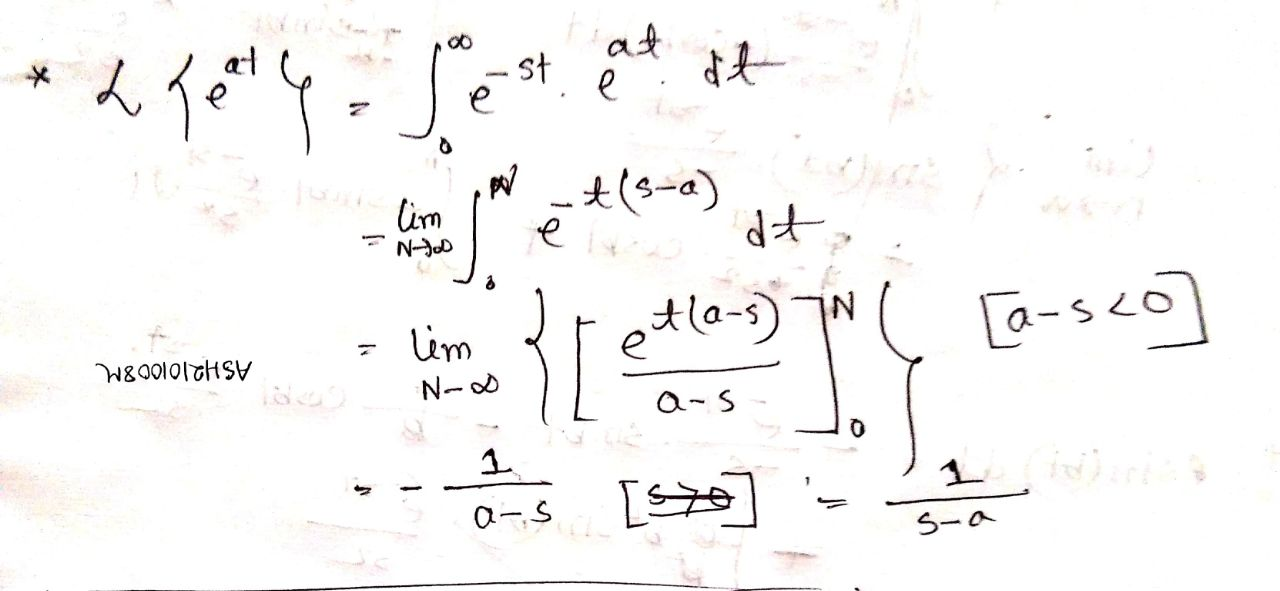 * L{e^{at}} = ∫_0^∞ e^{-st} . e^{at} . dt
= lim_{N→∞} ∫_0^N e^{-t(s-a)} dt
= lim_{N-∞} { [ e^{t(a-s)} / a-s ]_0^N } [a-s<0]
ASH2101008M
= - 1/a-s [s>0] = 1/s-a